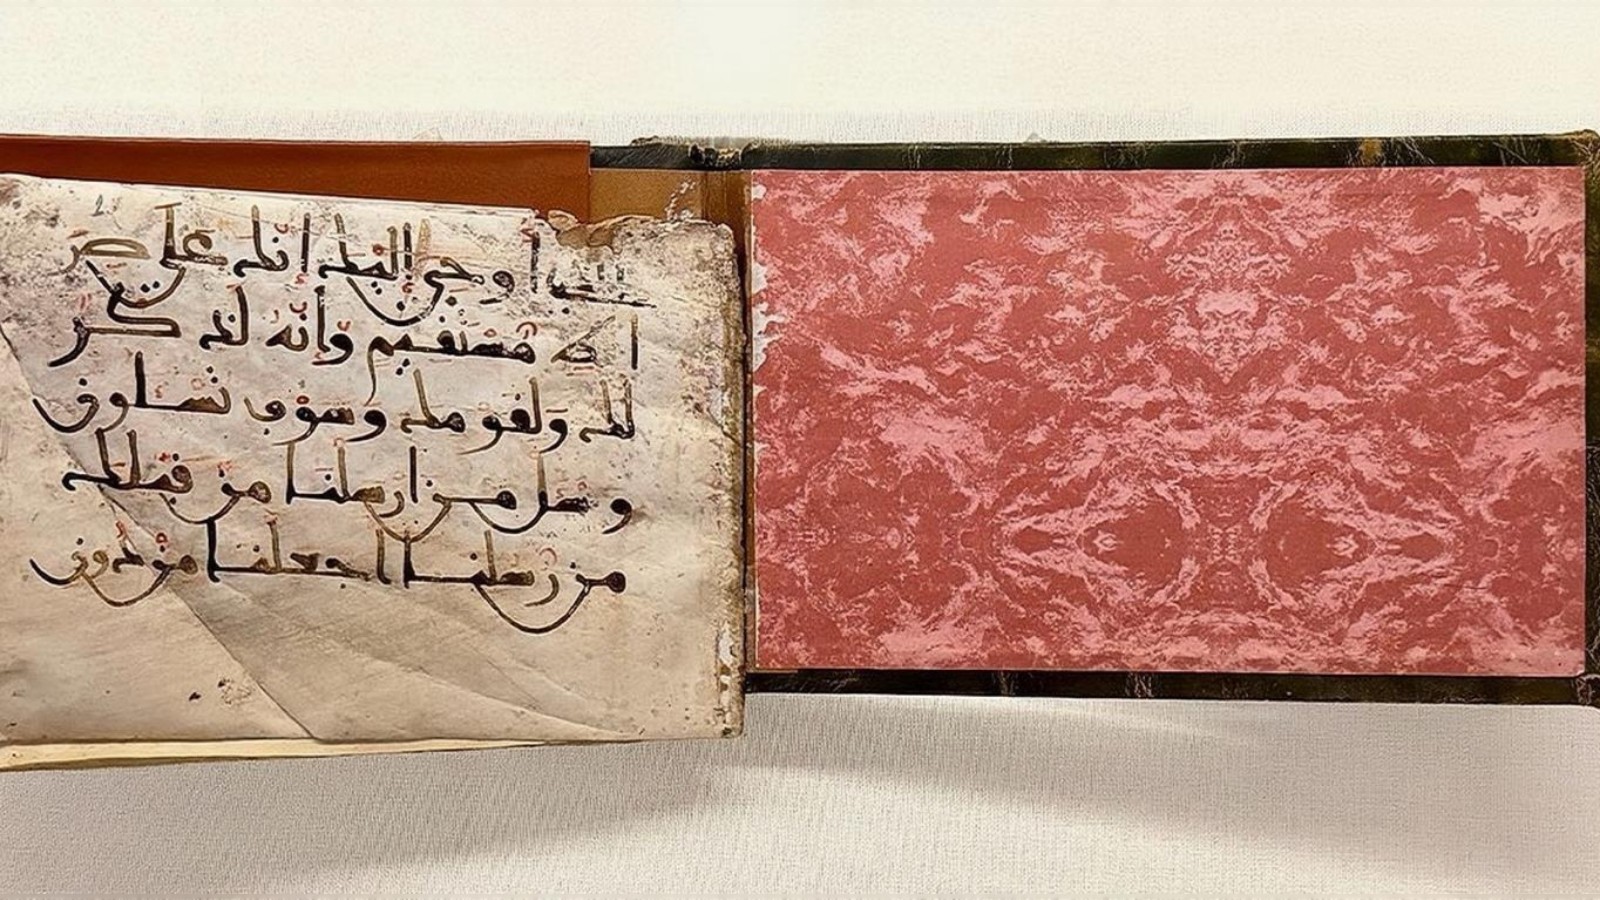 أوحي إليك إنك على صر
اط مستقيم وإنه لذكر
لك ولقومك وسوف تسلون
وسل من ارسلنا من قبلك
من رسلنا اجعلنا من دون